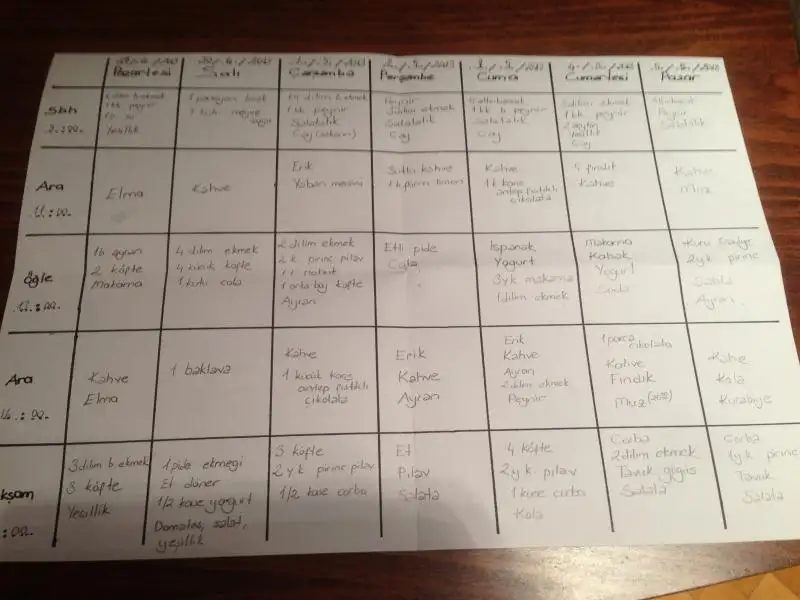 Pazartesi Salı Çarşamba Perşembe Cuma Cumartesi Pazar
Sbh
Yeşillik
Salatalık
Çay
Peynir
Salatalık
Çay
1 kk b. peynir
Salatalık
Çay
2 dilim ekmek
1 kk peynir
Yeşillik
Çay
Peynir
Salatalık
Ara
11:00.
Elma
Kahve
Erik
Yaban mersini
Sütlü kahve
Kahve
1 k kare
antep fıstıklı
çikolata
5 fındık
Kahve
Kahve
Muz
Öğle
1b ayran
2 köfte
Makarna
4 dilim ekmek
4 küçük köfte
1 kutu cola
2 dilim ekmek
2 k pirinç pilav
1 orta boy köfte
Ayran
Etli pide
Cola
Ispanak
Yogurt
3yk makarna
1 dilim ekmek
Makarna
Kabak
Yogurt
Kuru
2yk pirinç
Ayran
Ara
Kahve
Elma
1 baklava
Kahve
1 küçük kare
antep fıstıklı
çikolata
Erik
Kahve
Ayran
Erik
Kahve
Ayran
2 dilim ekmek
Peynir
1 parça
çikolata
Kahve
Fındık
Muz
Kahve
Kola
Kurabiye
kşam
:00.
3 dilim b. ekmek
3 köfte
Yeşillik
1 pide ekmegi
Et döner
1/2 kase yogurt
Domates, salat,
yeşillik
3 köfte
2 yk pirinç pilav
1/2 kase çorba
Et
Pilav
Salata
4 köfte
2yk. pilav
1 kase çorba
Kola
Çorba
2 dilim ekmek
Tavuk gögüs
Salata
Çorba
1yk pirinç
Tavuk
Salata